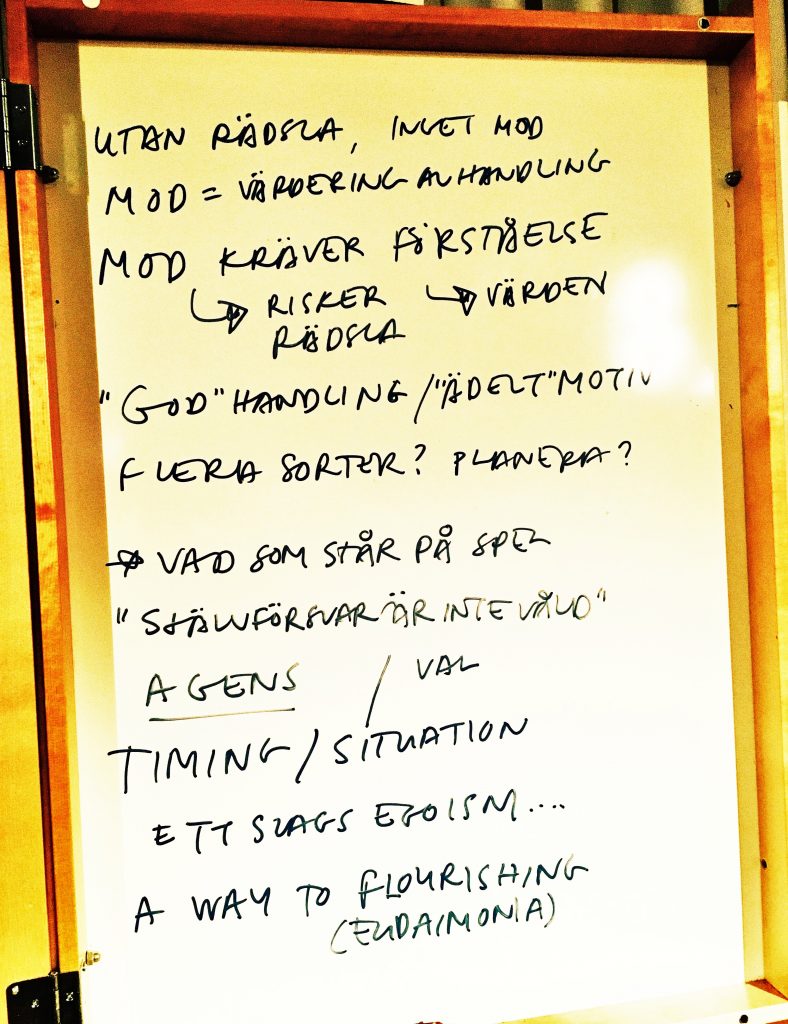 UTAN RÄDSLA, INGET MOD
MOD = VÄRDERING AV HANDLING
MOD KRÄVER FÖRSTÅELSE
↳ RISKER ↳ VÄRDEN
RÄDSLA
"GOD" HANDLING / "ÄDELT" MOTIV
FLERA SORTER? PLANERA?
→ VAD SOM STÅR PÅ SPEL
"SJÄLVFÖRSVAR ÄR INTE VÅLD"
AGENS / VAL
TIMING / SITUATION
ETT SLAGS EGOISM....
A WAY TO FLOURISHING
(EUDAIMONIA)